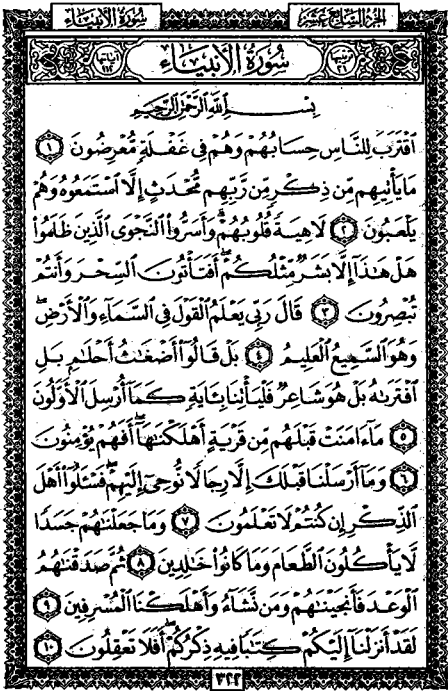 الجزء السابع عشر سورة الأنبياء
ترتيبها ٢١ سُورَةُ الأَنبِيَاءِ آياتها ١١٢
بِسْمِ اللَّهِ الرَّحْمَٰنِ الرَّحِيمِ
ٱقْتَرَبَ لِلنَّاسِ حِسَابُهُمْ وَهُمْ فِى غَفْلَةٍ مُّعْرِضُونَ ١
مَا يَأْتِيهِم مِّن ذِكْرٍ مِّن رَّبِّهِم مُّحْدَثٍ إِلَّا ٱسْتَمَعُوهُ وَهُمْ
يَلْعَبُونَ ٢ لَاهِيَةً قُلُوبُهُمْ ۗ وَأَسَرُّوا۟ ٱلنَّجْوَى ٱلَّذِينَ ظَلَمُوا۟
هَلْ هَٰذَآ إِلَّا بَشَرٌ مِّثْلُكُمْ ۖ أَفَتَأْتُونَ ٱلسِّحْرَ وَأَنتُمْ
تُبْصِرُونَ ٣ قَالَ رَبِّى يَعْلَمُ ٱلْقَوْلَ فِى ٱلسَّمَآءِ وَٱلْأَرْضِ ۖ
وَهُوَ ٱلسَّمِيعُ ٱلْعَلِيمُ ٤ بَلْ قَالُوٓا۟ أَضْغَٰثُ أَحْلَٰمٍۭ بَلِ
ٱفْتَرَىٰهُ بَلْ هُوَ شَاعِرٌ فَلْيَأْتِنَا بِـَٔايَةٍ كَمَآ أُرْسِلَ ٱلْأَوَّلُونَ
٥ مَآ ءَامَنَتْ قَبْلَهُم مِّن قَرْيَةٍ أَهْلَكْنَٰهَآ ۖ أَفَهُمْ يُؤْمِنُونَ
٦ وَمَآ أَرْسَلْنَا قَبْلَكَ إِلَّا رِجَالًا نُّوحِىٓ إِلَيْهِمْ ۖ فَسْـَٔلُوٓا۟ أَهْلَ
ٱلذِّكْرِ إِن كُنتُمْ لَا تَعْلَمُونَ ٧ وَمَا جَعَلْنَٰهُمْ جَسَدًا
لَّا يَأْكُلُونَ ٱلطَّعَامَ وَمَا كَانُوا۟ خَٰلِدِينَ ٨ ثُمَّ صَدَقْنَٰهُمُ
ٱلْوَعْدَ فَأَنجَيْنَٰهُمْ وَمَن نَّشَآءُ وَأَهْلَكْنَا ٱلْمُسْرِفِينَ ٩
لَقَدْ أَنزَلْنَآ إِلَيْكُمْ كِتَٰبًا فِيهِ ذِكْرُكُمْ ۖ أَفَلَا تَعْقِلُونَ ١٠
٣٢٢